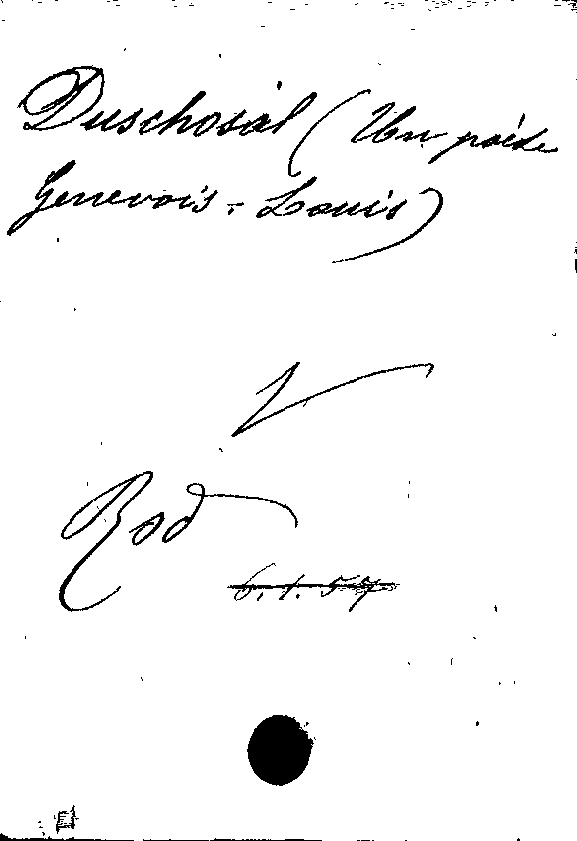 Duschosal (Un poète
Genevois - Louis)
V
Rod
6.1.57